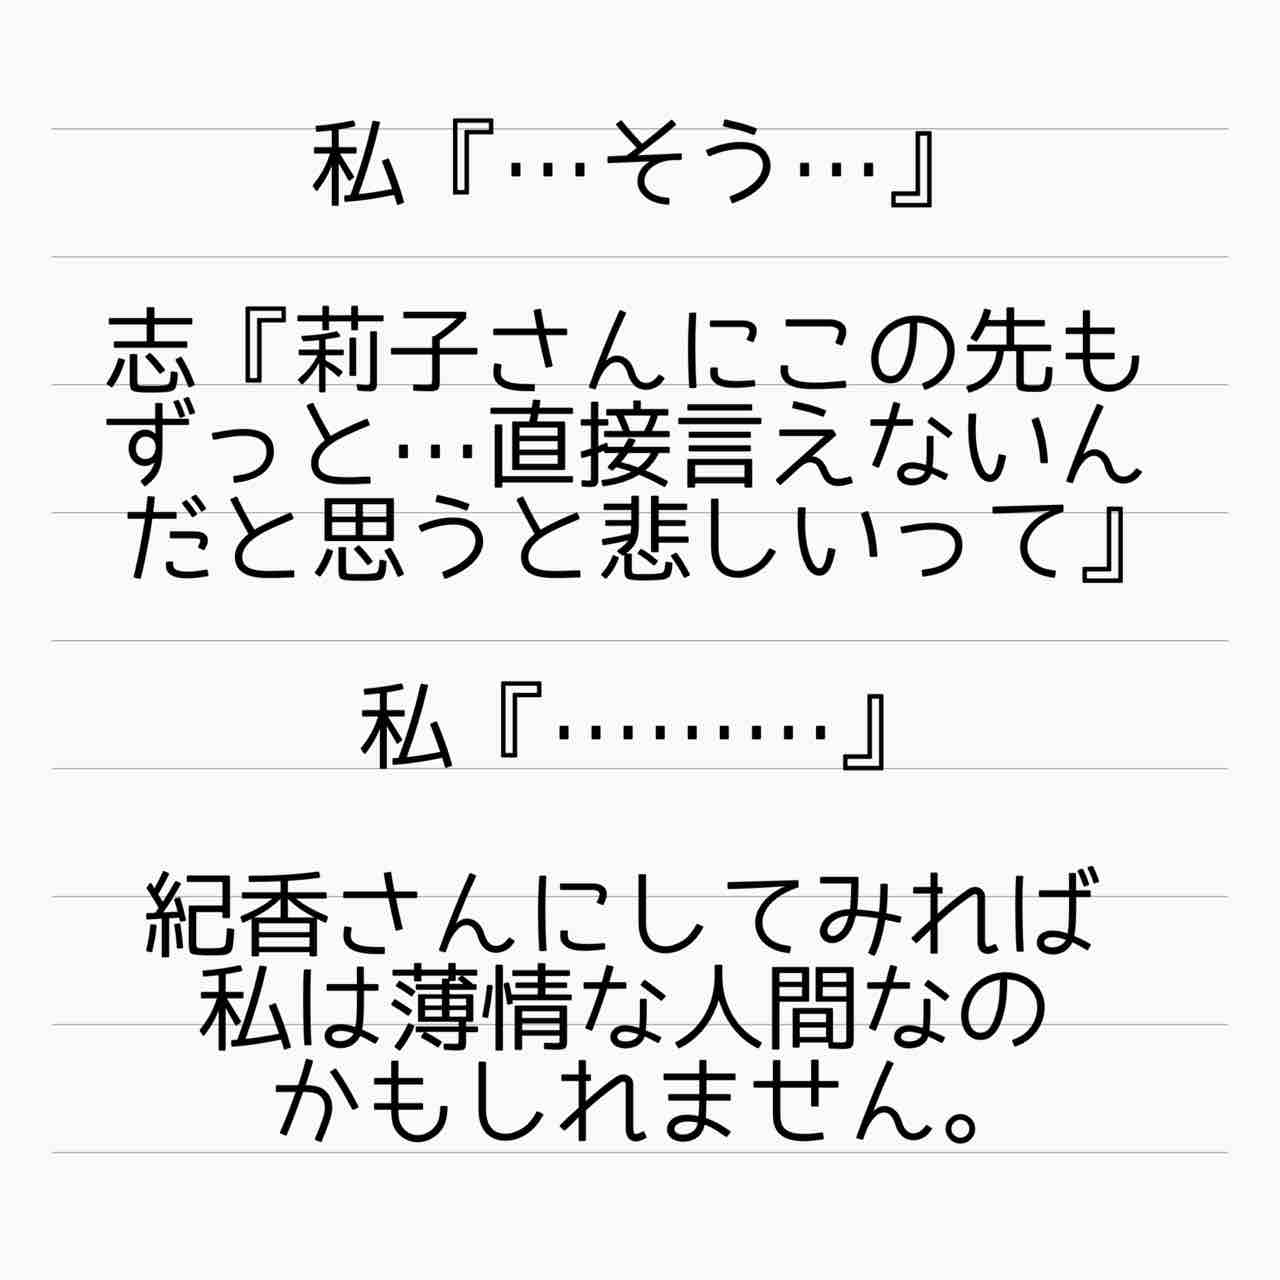 私『…そう…』
志『莉子さんにこの先も
ずっと…直接言えないん
だと思うと悲しいって』
私『………』
紀香さんにしてみれば
私は薄情な人間なの
かもしれません。